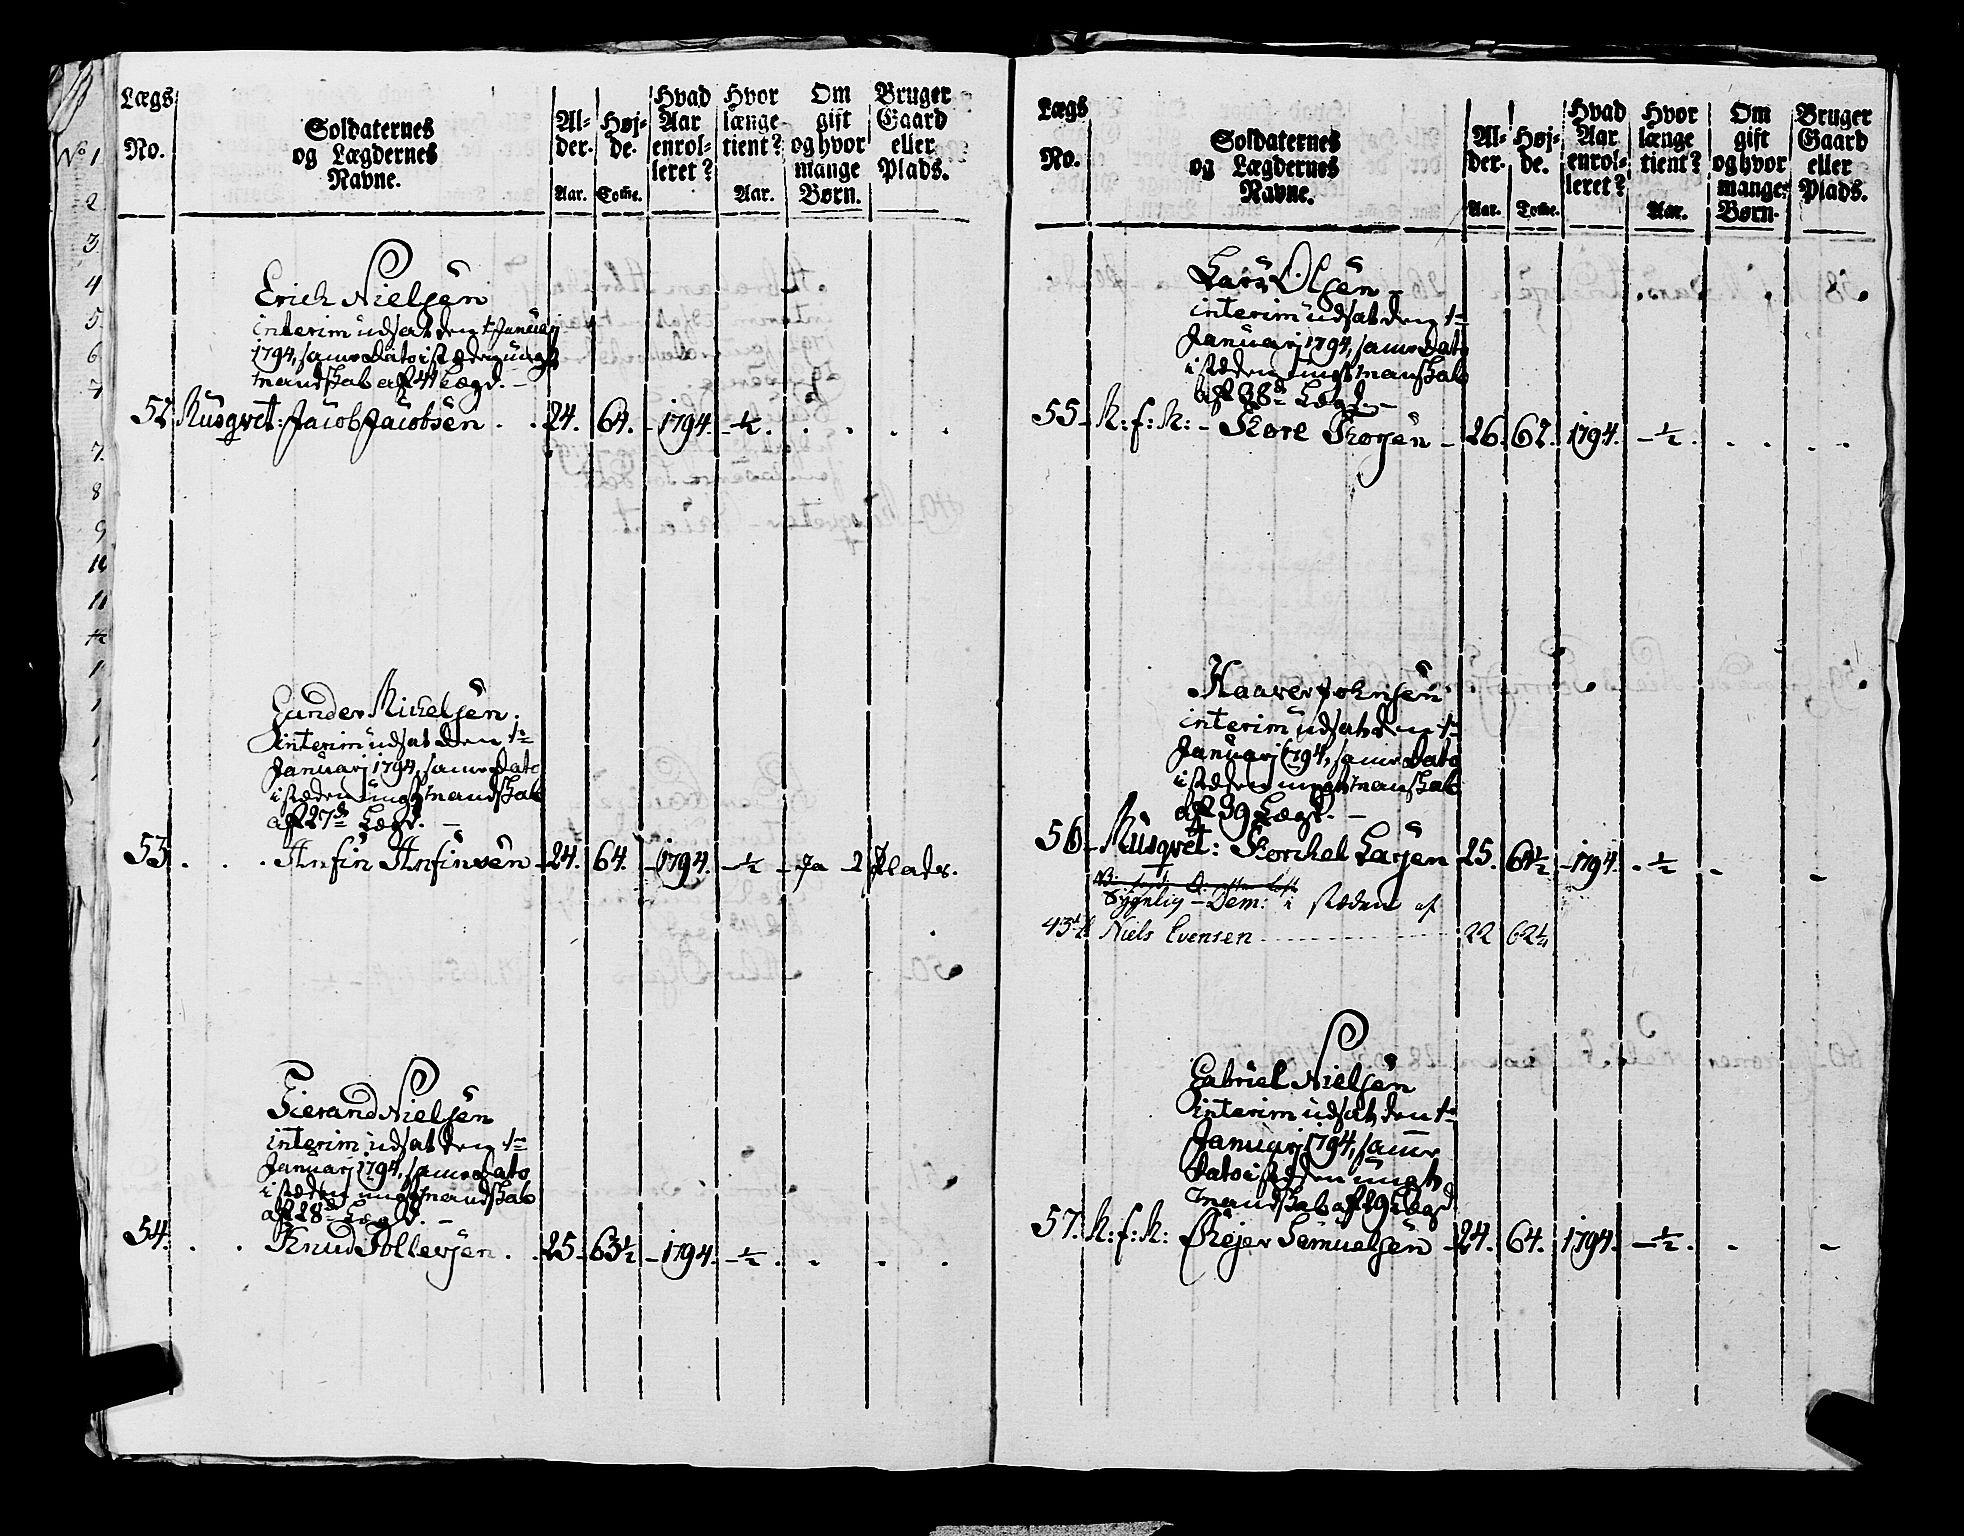 Lægs No.
Soldaternes og Lægdernes Navne.
Al-der. Aar.
Høj-de. Tomme.
Hvad Aar enrol-leret?
Hvor længe tient? Aar.
Om gift og hvor mange Børn.
Bruger Gaard eller Plads.
No 1
2
3
4
5
6
7
7
8
9
10
11
Erich Nielsen
interim udsat den 1 Januarj
1794, samme Dato i stæden ungt
mandskab af 4 Lægd. –
52 Musqvet: Jacob Jacobsen . . 24. 64. – 1794. – ½ .
Gunder Michelsen.
interim udsat den 1te
Januarj 1794, samme Dato
i stæden ungt mandskab
af 27de Lægd. –
53 . . . Anfin Anfinsen – 24. 64. – 1794. – ½ – Ja – 2 Plads.
Tierand Nielsen
interim udsat den 1te
Januarj 1794, samme Dato
i stæden ungt mandskab
af 28de Lægd. –
54. . . Knud Tollevsen . . 25 – 63½ – 1794. – ½ .
Lægs No.
Soldaternes og Lægdernes Navne.
Al-der. Aar.
Høj-de. Tomme.
Hvad Aar enrol-leret?
Hvor længe tient? Aar.
Om gift og hvor mange Børn.
Bruger Gaard eller Plads.
Lars Olsen –
interim udsat den 1te
Januarj 1794, samme Dato
i stæden ungt manskab
af 38de Lægd –
55 – K: f: K: – Tore – 26. 62. 1794. – ½ .
Haaver Johnsen
interim udsat den 1te
Januarj 1794, samme Dato
i stæden ungt manskab
af 39 Lægd. –
56 – Musqvet: Torchel Larsen – 25. 64½ – 1794. . ½ –
Sygelig – Dem: i stæden af
43de Niels Evensen 22 62¼
Gabriel Nielsen
interim udsat den 1te
Januarj 1794, samme
Dato i stæden ungt
mandskab af 29 Lægd
57. K: f: K: Rejer Semuelsen – 24. 64. 1794. – ½ . – –